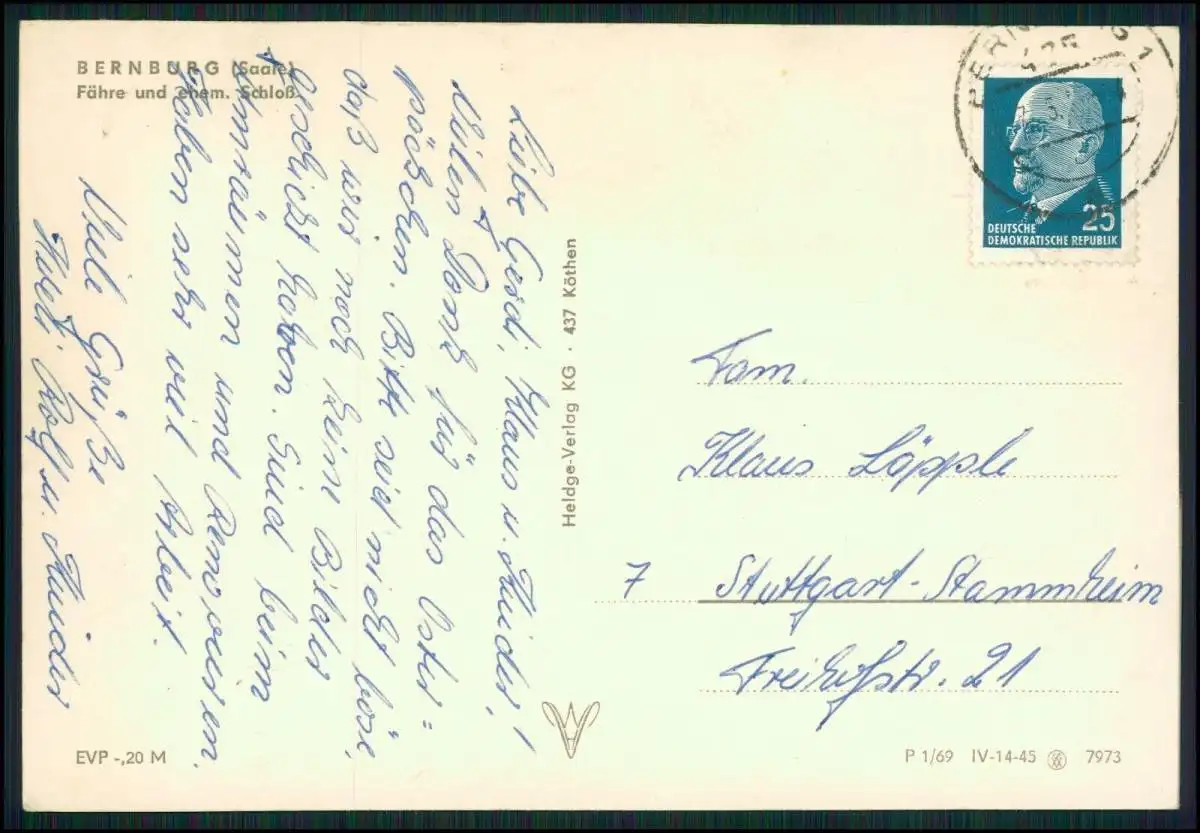 BERNBURG (Saale)
Fähre und ehem. Schloß
Liebe Gerdi, Klaus u. Kinder!
Vielen Dank für das Oster=
päckchen. Bitte seid nicht böse,
daß wir noch kein Bilder
geschickt haben. Sind beim
Umräumen und Renovieren.
Haben sehr viel Arbeit.
Viele Grüße
Rolf u. Kinder
Heldge-Verlag KG · 437 Köthen
25
DEUTSCHE
DEMOKRATISCHE REPUBLIK
Fam.
Klaus Läpple
7 Stuttgart-Stammheim
Freihofstr. 21
EVP -,20 M
P 1/69 IV-14-45 7973